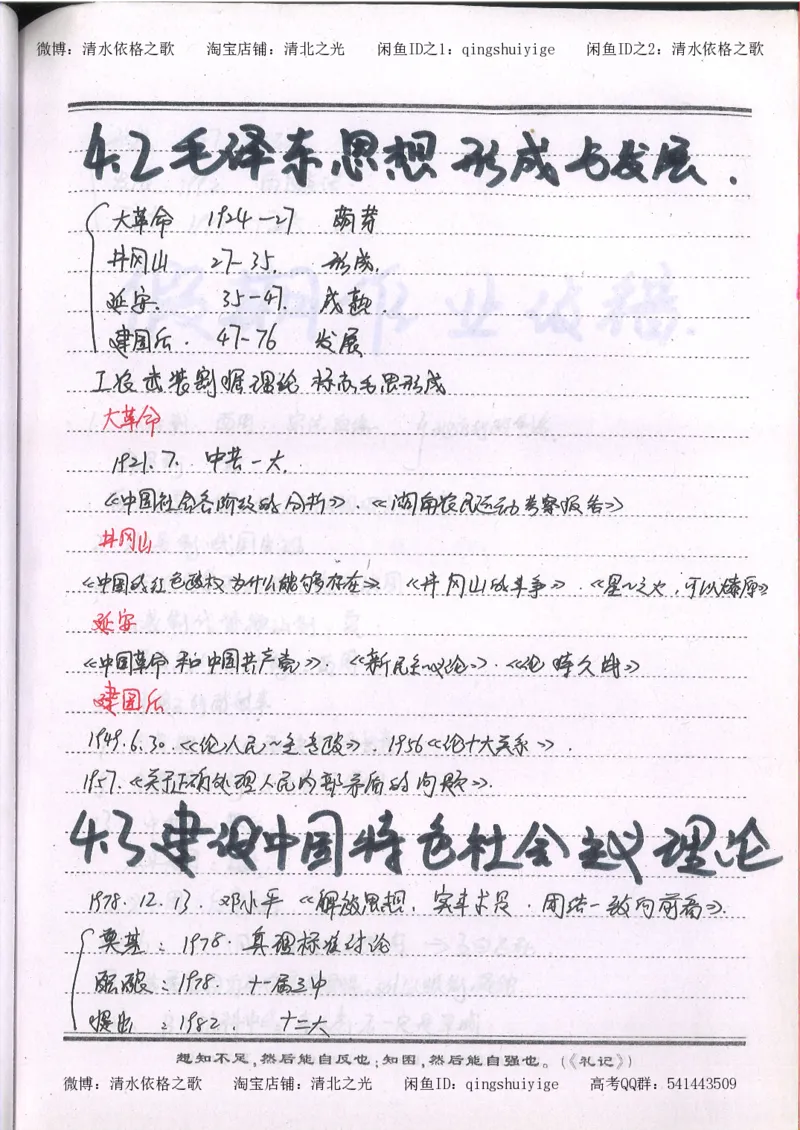 微博：清水依格之歌 淘宝店铺：清北之光 闲鱼ID之1：qingshuiyige 闲鱼ID之2：清水依格之歌
4.2 毛泽东思想形成与发展.
大革命 1924—27 萌芽
井冈山 27-35. 形成.
延安. 35-47. 成熟.
建国后. 47-76 发展
工农武装割据理论 标志毛思形成
大革命
1921.7. 中共一大.
《中国社会各阶级的分析》.《湖南农民运动考察报告》
井冈山
《中国的红色政权为什么能够存在》《井冈山的斗争》.《星~之火,可以燎原》
延安
《中国革命和中国共产党》《新民主~议论》.《论持久战》
建国后
1949.6.30.《论人民~主专政》 1956《论十大关系》.
1957.《关于正确处理人民内部矛盾的问题》.
4.3 建设中国特色社会主义理论
1978.12.13. 邓小平《解放思想.实事求是.团结一致向前看》.
奠基：1978.真理标准讨论
酝酿：1978. 十一届三中
提出：1982. 十二大
想知不足,然后能自反也；知困,然后能自强也。(《礼记》)
微博：清水依格之歌 淘宝店铺：清北之光 闲鱼ID：qingshuiyige 高考QQ群：541443509